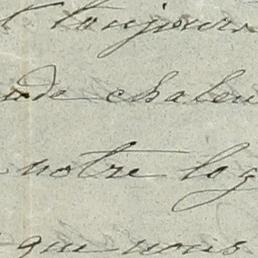 toujours
de chaleu
notre log
que nous